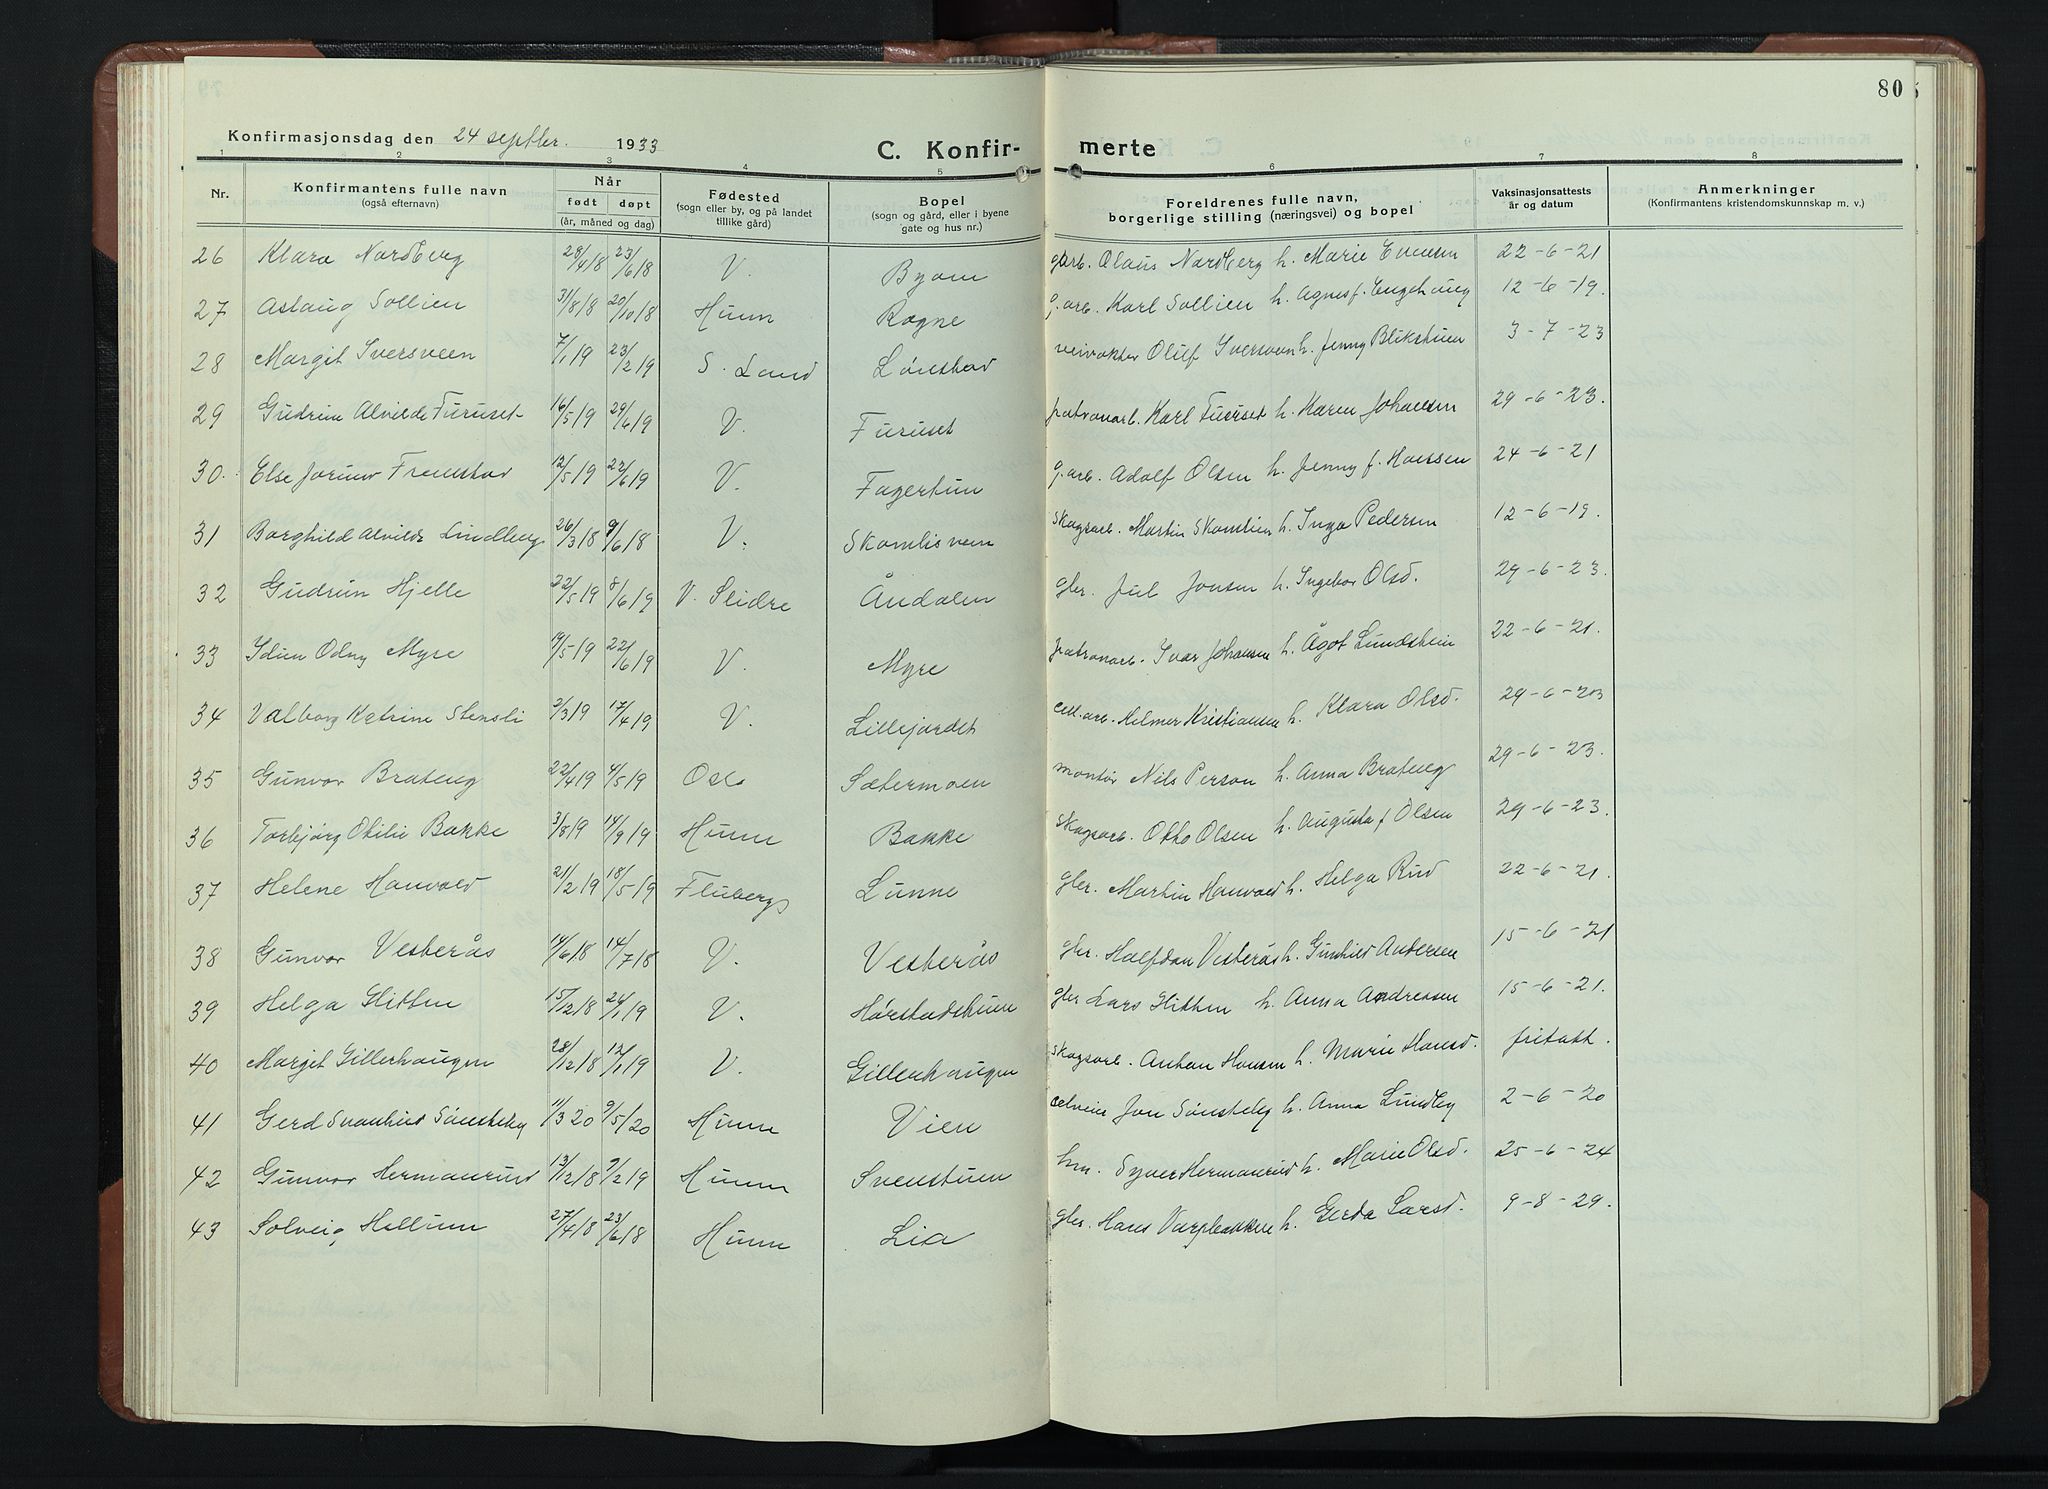 80
Konfirmasjonsdag den 24 septbr. 1933
C. Konfir- merte
1 2 3 4 5 6 7 8
Nr.
Konfirmantens fulle navn
(også efternavn)
Når
født døpt
(år, måned og dag)
Fødested
(sogn eller by, og på landet
tillike gård)
Bopel
(sogn og gård, eller i byene
gate og hus nr.)
Foreldrenes fulle navn,
borgerlige stilling (næringsvei) og bopel
Vaksinasjonsattests
år og datum
Anmerkninger
(Konfirmantens kristendomskunnskap m. v.)
26 Klara Nordberg 28/4 18 23/6 18 V. Byom Olaus Nordberg h. Marie Evensen 22-6-21
27 Aslaug Sollien 31/8 18 20/10 18 Hunn Rogne g.arb. Karl Sollien h. Agnes f. Engehaug 12-6-19.
28 Margit Iversveen 7/1 19 23/2 19 S. Land Lønstad veivokter Oluf Iversveen h. Jenny 3-7-23
29 Gudrun Alvilde Furuset 16/5 19 29/6 19 V. Furuset patronarb. Karl Furuset h. Karen Johansen 29-6-23.
30. Else Jorunn 12/5 19 22/6 19 V. Fagertun g.arb. Adolf Olsen h. Jenny f. Hansen 24-6-21
31 Borghild Alvilde Lindberg 26/3 18 9/6 18 V. Skogsarb. Martin h. Inga Pedersen 12-6-19.
32 Gudrun Hjelle 22/5 19 8/6 19 V. Slidre Åndalen gbr. Jul Jonsen h. Ingebor Olsd. 29-6-23.
33 Idun Odny Myre /5 19 22/6 19 V. Myre patronarb. Ivar Johansen h. Ågot 22-6-21.
34 Valborg Katrine Stensli 2/3 19 17/4 19 V. Lillejordet cell.arb. Helmer Kristiansen h. Klara Olsd. 29-6-23
35 Gunvor Brateng 22/4 19 4/5 19 Oslo Sætermoen montør Nils Person h. Anna Brateng 29-6-23.
36 Torbjørg Otilie Bakke 3/8 19 14/9 19 Hunn Bakke Skogsarb. Otto Olsen h. Augusta f Olsen 29-6-23.
37 Helene Hanvold 21/2 19 18/5 19 Fluberg Lunne gbr. Martin Hanvold h. Helga Rud 22-6-21.
38 Gunvor Vesterås 14/6 18 14/7 18 V. Vesterås gbr. Halfdan Vesterås h. Gunhild Andersen 15-6-21
39 Helga Hitten 15/12 18 26/1 19 V. gbr Lars Hitten h. Anna Andressen 15-6-21.
40 Margit Gillerhaugen 28/12 18 12/1 19 V. Gillerhaugen Skogsarb. Anton Hansen h. Marie Hansd. fritatt.
41 Gerd Svanhild Sønsteby 11/3 20 9/5 20 Hunn Vien Jon Sønsteby h. Anna Lundby 2-6-20
42 Gunvor Hermanrud 13/12 18 9/2 19 Hunn Svenstuen hm. Syver Hermanrud h. Marie Olsd. 25-6-24
43 Solveig Hellum 27/4 18 23/6 18 Hunn Lia gbr. Hans h. Gerda Larsd. 9-8-29.